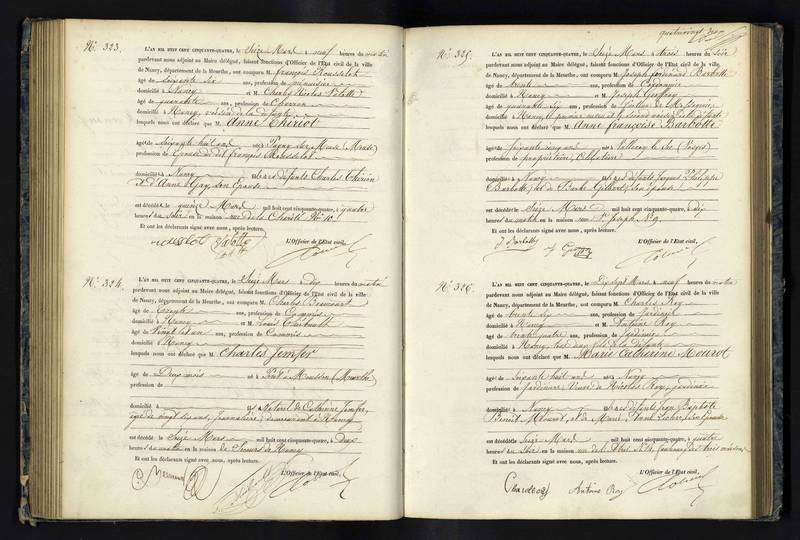 N.º 323.
L'AN MIL HUIT CENT CINQUANTE-QUATRE, le Seize Mars à neuf heures du matin
pardevant nous adjoint au Maire délégué, faisant fonctions d'Officier de l'Etat civil de la ville
de Nancy, département de la Meurthe, ont comparu M. françois Rousselot
âgé de soixante six ans, profession de menuisier
domicilié à Nancy et M. Charles Nicolas Valotte
âgé de quarante ans, profession de
domicilié à Nancy, voisin de la défunte
lesquels nous ont déclaré que M. Anne Thiriot
âgé de Soixante huit ans née à Pagny sur Meuse (Meuse)
profession de Epouse du dit françois Rousselot
domiciliée à Nancy des défunts Charles Thiriot
et d'Anne Gay son Epouse
est décédée le quinze Mars mil huit cent cinquante-quatre, à quatre
heures du soir en la maison rue de la Charité N.º 10
Et ont les déclarants signé avec nous, après lecture.
rousselot Valotte
L'Officier de l'Etat civil,
N.º 324.
L'AN MIL HUIT CENT CINQUANTE-QUATRE, le Seize Mars à dix heures du matin
pardevant nous adjoint au Maire délégué, faisant fonctions d'Officier de l'Etat civil de la ville
de Nancy, département de la Meurthe, ont comparu M. Charles
âgé de trente ans, profession de Commis
domicilié à Nancy et M. Louis
âgé de Vingt et un ans, profession de Commis
domicilié à Nancy
lesquels nous ont déclaré que M. Charles Jemfer
âgé de Deux mois né à Pont à Mousson (Meurthe)
profession de
domicilié à fils Naturel de Catherine Jemfer,
âgée de vingt six ans, journalière, demeurant à Nancy
est décédé le Seize Mars mil huit cent cinquante-quatre, à deux
heures du matin en la maison de Secours de Nancy
Et ont les déclarants signé avec nous, après lecture.
L'Officier de l'Etat civil,
quatrevingt
N.º 325.
L'AN MIL HUIT CENT CINQUANTE-QUATRE, le Seize Mars à trois heures du Soir
pardevant nous adjoint au Maire délégué, faisant fonctions d'Officier de l'Etat civil de la ville
de Nancy, département de la Meurthe, ont comparu M. Joseph ferdinand Barbotte
âgé de trente ans, profession de
domicilié à Nancy et M. Joseph
âgé de quarante six ans, profession de
domicilié à Nancy, le premier neveu et le second voisin de la défunte
lesquels nous ont déclaré que M. Anne françoise Barbotte
âgée de Soixante cinq ans née à Valleroy le Sec (Vosges)
profession de propriétaire, Célibataire
domiciliée à Nancy des défunts Jacques Philippe
Barbotte, et de Barbe son épouse
est décédée le Seize Mars mil huit cent cinquante-quatre, à dix
heures du matin en la maison rue S.t Joseph N.º 9
Et ont les déclarants signé avec nous, après lecture.
J Barbotte
L'Officier de l'Etat civil,
N.º 326.
L'AN MIL HUIT CENT CINQUANTE-QUATRE, le Dix Sept Mars, à neuf heures du matin
pardevant nous adjoint au Maire délégué, faisant fonctions d'Officier de l'Etat civil de la ville
de Nancy, département de la Meurthe, ont comparu M. Charles Roy
âgé de trente six ans, profession de Jardinier
domicilié à Nancy et M. Antoine Roy
âgé de trente quatre ans, profession de Jardinier
domicilié à Nancy, tous deux fils de la défunte
lesquels nous ont déclaré que M. Marie Catherine Mourot
âgée de Soixante huit ans née à Nancy
profession de Jardinière, Veuve de Nicolas Roy, jardinier
domiciliée à Nancy des défunts Jean Baptiste
Mourot, et de Marie son Epouse
est décédée le Seize Mars mil huit cent cinquante-quatre, à quatre
heures du Soir en la maison rue N.º 14, faubourg des trois maisons
Et ont les déclarants signé avec nous, après lecture.
L'Officier de l'Etat civil,
Charle roy Antoine Roy